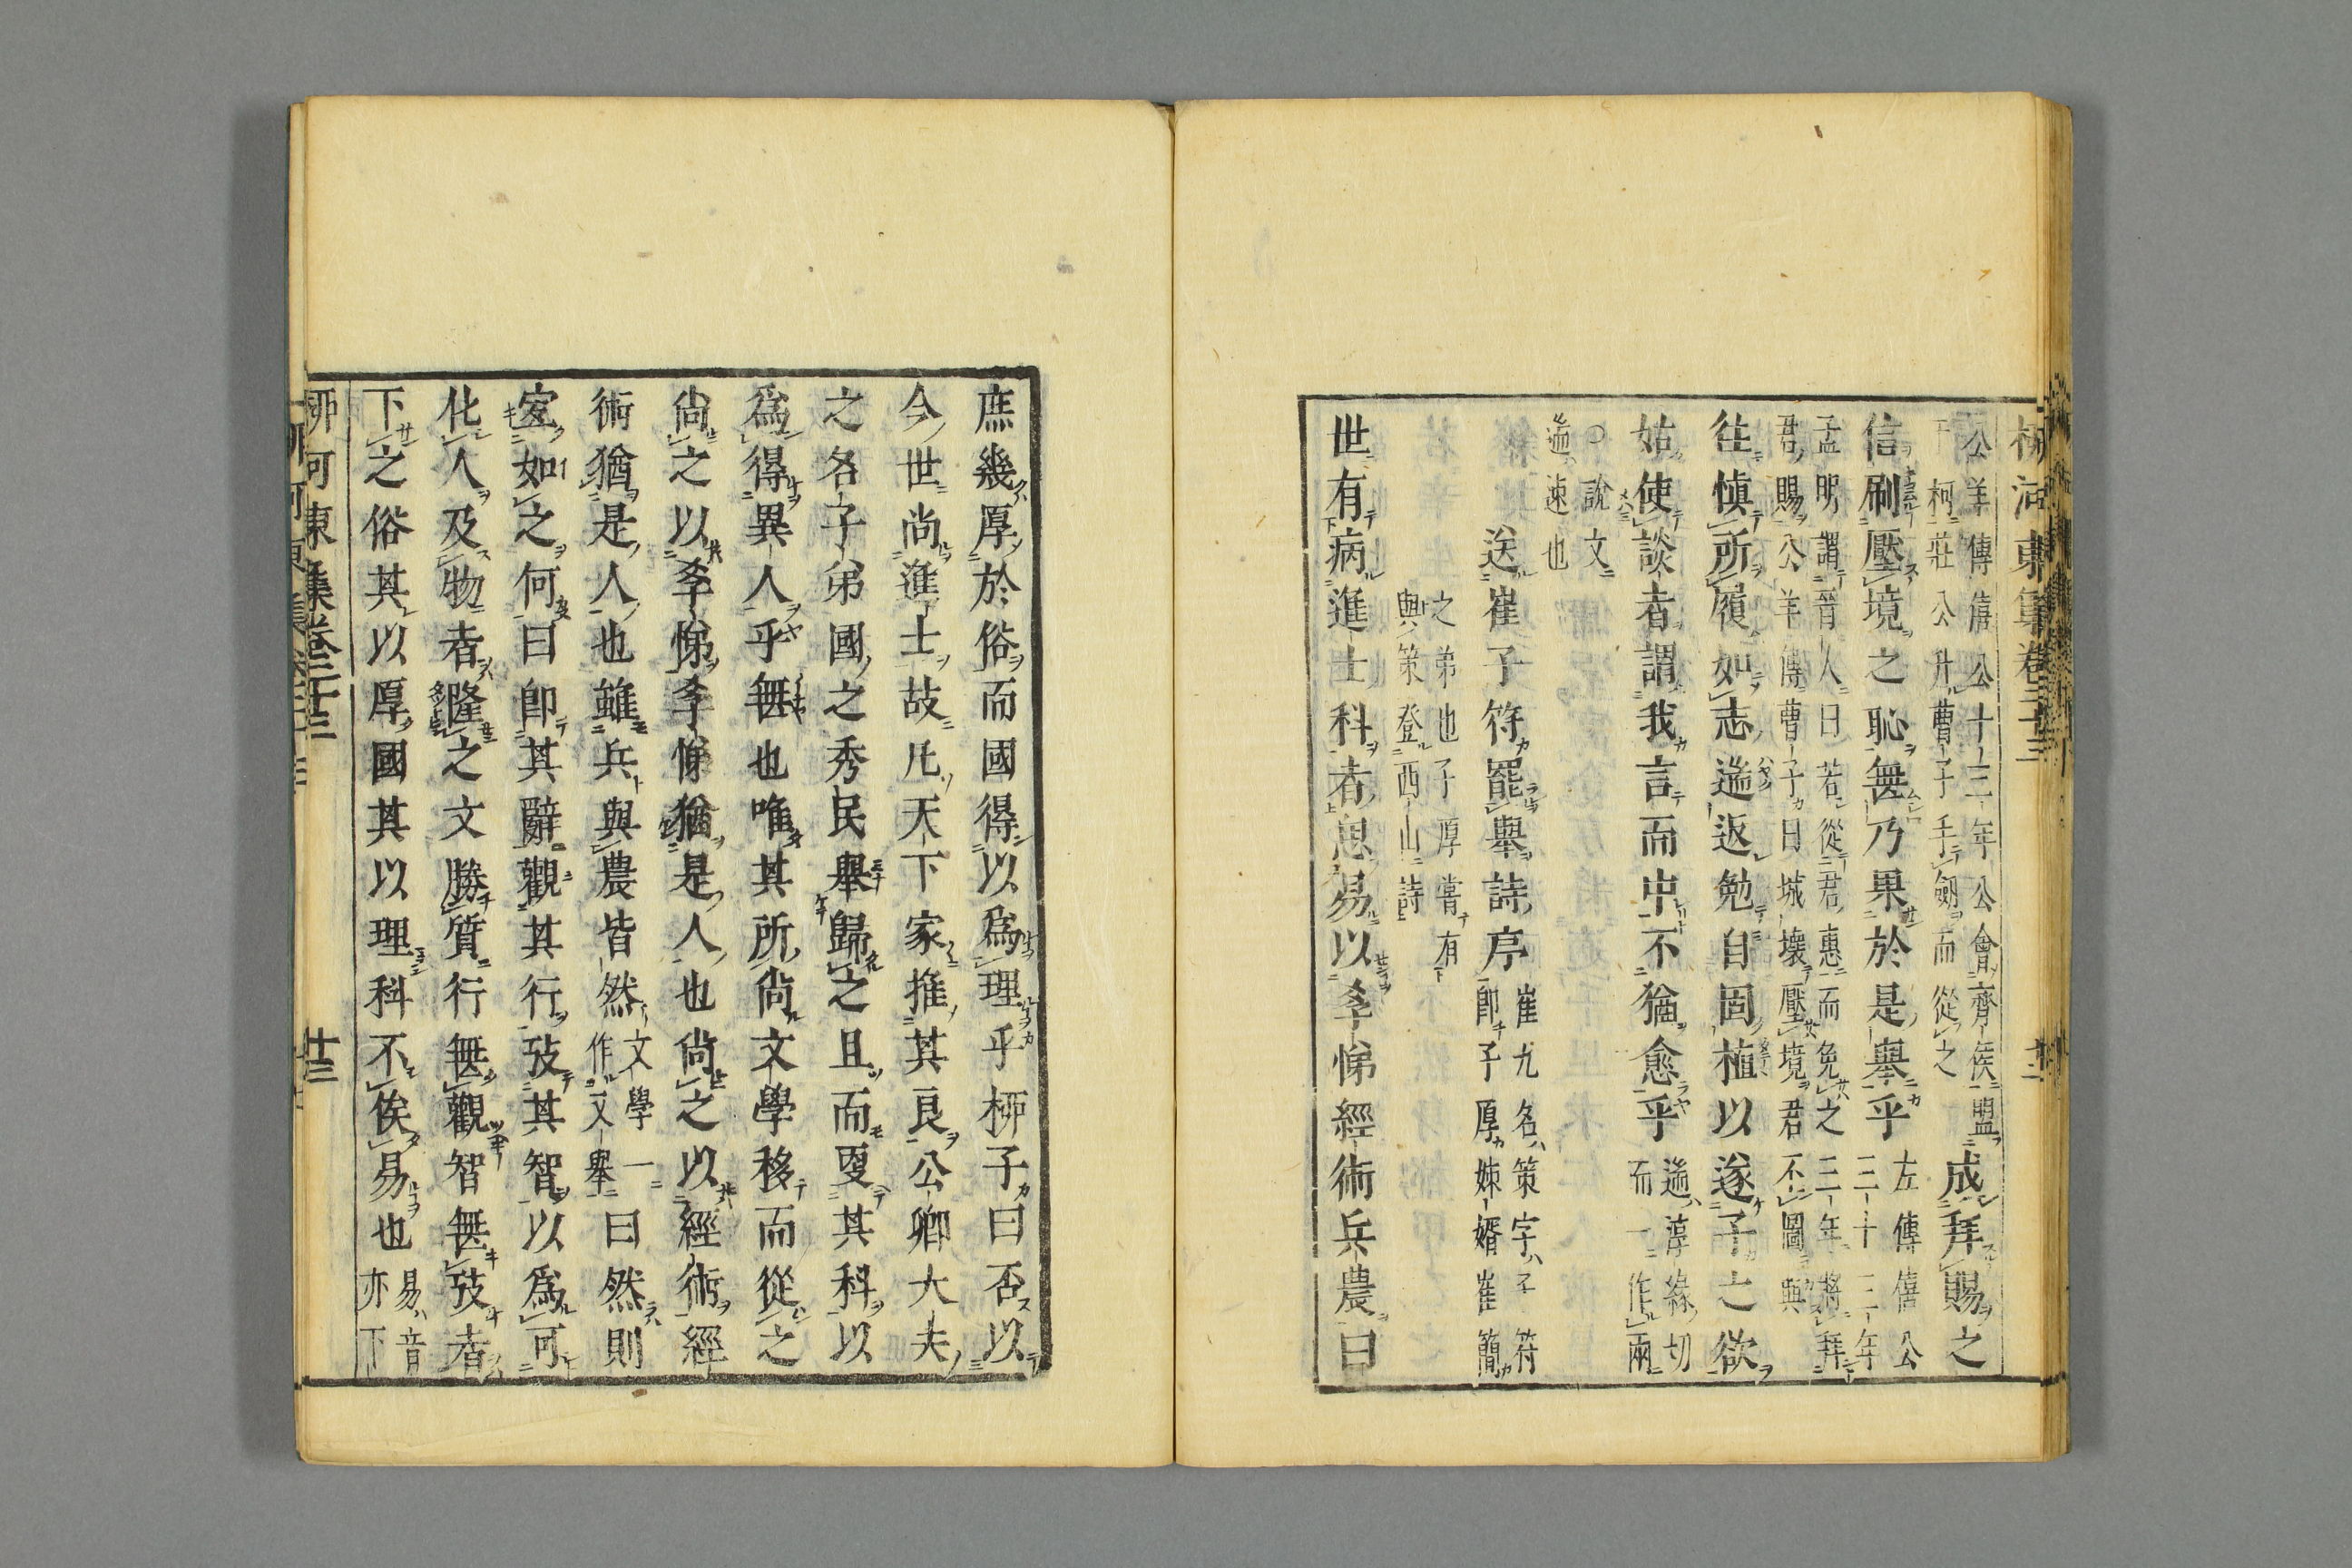 柳河東集卷二十三
公羊傳僖公十三年公會齊侯盟
于柯莊公升曹子手劔而從之
成拜賜之
信刷壓境之恥無乃果於是舉乎
左傳僖公
三十三年
孟明謂晉人曰若從君惠而免之三年將拜
君賜公羊傳曹子曰城壞壓境君不圖與
往慎所履如志遄返勉自固植以遂子之欲
姑使談者謂我言而中不猶愈乎
遄淳緣切
而一作兩
○說文
遄速也
送崔子符罷舉詩序
崔九名策字子符
卽子厚姊婿崔簡
之弟也子厚嘗有
與策登西山詩
世有病進士科者思易以孝悌經術兵農曰
庶幾厚於俗而國得以爲理乎柳子曰否以
今世尚進士故凡天下家推其良公卿大夫
之名子弟國之秀民舉歸之且而更其科以
爲得異人乎無也唯其所尚文學移而從之
尚之以孝悌孝悌猶是人也尚之以經術經
術猶是人也雖兵與農皆然
文學一
作文舉
曰然則
宜如之何曰卽其辭觀其行考其智以爲可
化人及物者隆之文勝質行無觀智無考者
下之俗其以厚國其以理科不俟易也
易音
亦下
柳河東集卷二十三
十三